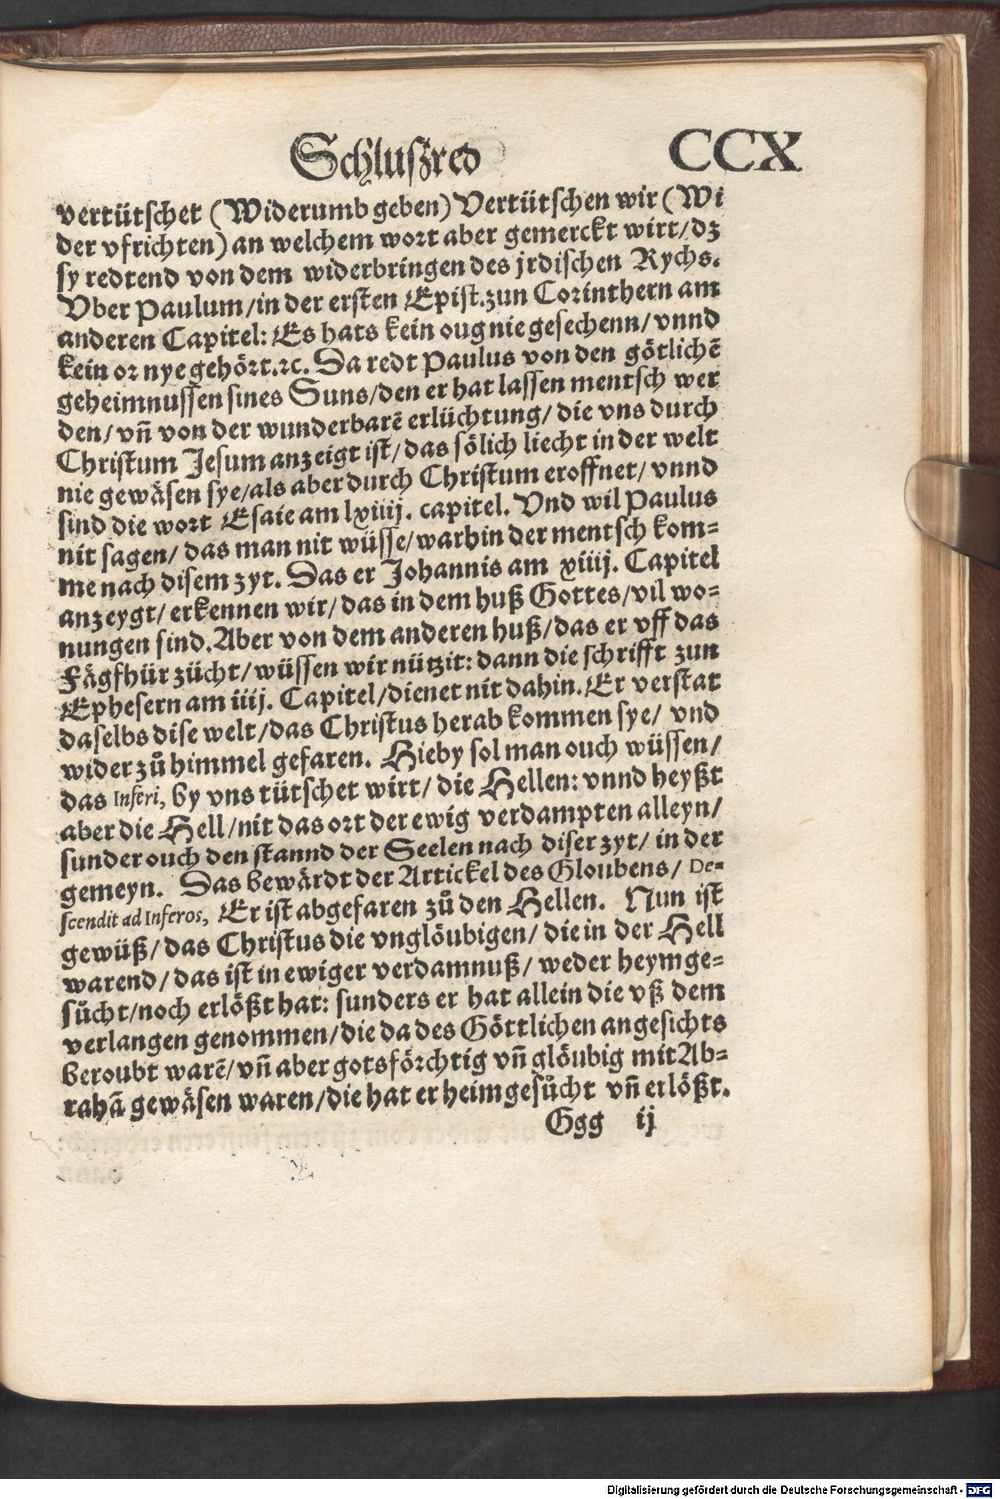 Schluszred CCX
vertütschet (Widerumb geben) Vertütschen wir (Wi
der vfrichten) an welchem wort aber gemerckt wirt/ dz
sy redtend von dem widerbringen des jrdischen Rychs.
Vber Paulum/ in der ersten Epist. zun Corinthern am
anderen Capitel: Es hats kein oug nie gesechenn/ vnnd
kein or nye gehört. ꝛc. Da redt Paulus von den götlichē
geheimnussen sines Suns/ den er hat lassen mentsch wer
den/ vn̄ von der wunderbarē erlüchtung/ die vns durch
Christum Jesum anzeigt ist/ das sölich liecht in der welt
nie gewäsen sye/ als aber durch Christum eroffnet/ vnnd
sind die wort Esaie am lxiiij. capitel. Vnd wil Paulus
nit sagen/ das man nit wüsse/ warhin der mentsch kom-
me nach disem zyt. Das er Johannis am xiiij. Capitel
anzeygt/ erkennen wir/ das in dem huß Gottes/ vil wo-
nungen sind. Aber von dem anderen huß/ das er vff das
Fägfhür zücht/ wüssen wir nützit: dann die schrifft zun
Ephesern am iiij. Capitel/ dienet nit dahin. Er verstat
daselbs dise welt/ das Christus herab kommen sye/ vnd
wider zů himmel gefaren. Hieby sol man ouch wüssen/
das Inferi, by vns tütschet wirt/ die Hellen: vnnd heyßt
aber die Hell/ nit das ort der ewig verdampten alleyn/
sunder ouch den stannd der Seelen nach diser zyt/ in der
gemeyn. Das bewärdt der Artickel des Gloubens/ De-
scendit ad Inferos, Er ist abgefaren zů den Hellen. Nun ist
gewüß/ das Christus die vnglöubigen/ die in der Hell
warend/ das ist in ewiger verdamnuß/ weder heymge-
sůcht/ noch erlößt hat: sunders er hat allein die vß dem
verlangen genommen/ die da des Göttlichen angesichts
beroubt warē/ vn̄ aber gotsförchtig vn̄ glöubig mit Ab-
rahā gewäsen waren/ die hat er heimgesůcht vn̄ erlößt.
Ggg ij
Digitalisierung gefördert durch die Deutsche Forschungsgemeinschaft - DFG